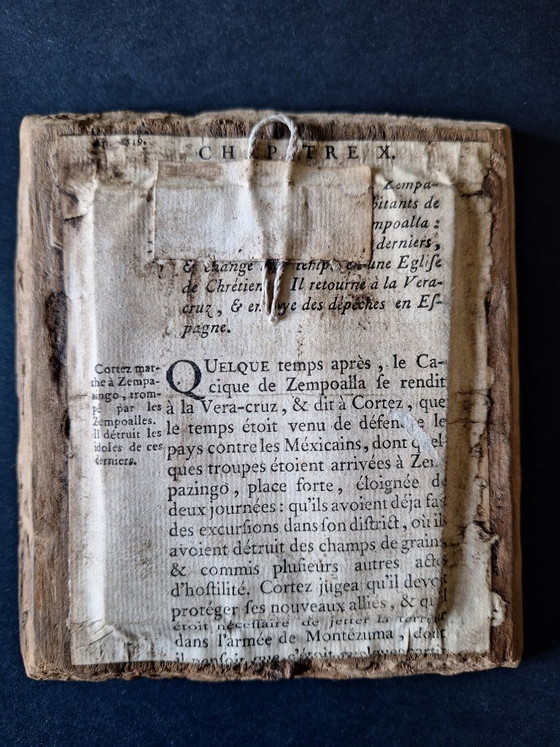 CHAPITRE X.
Zempa-
bitants de
mpoalla :
derniers,
& change en une Eglise
de Chrétien Il retourne à la Vera-
cruz, & envoye des dépêches en Es-
pagne.
Cortez mar-
che à Zempa-
zingo, trom-
pé par les
Zempoalles.
Il détruit les
idoles de ces
derniers.
QUELQUE temps après, le Ca-
cique de Zempoalla se rendit
à la Vera-cruz, & dit à Cortez, que
le temps étoit venu de défendre le
pays contre les Méxicains, dont quel-
ques troupes étoient arrivées à Zem-
pazingo, place forte, éloignée de
deux journées : qu'ils avoient déja fait
des excursions dans son district, où ils
avoient détruit des champs de grains
& commis plusieurs autres actes
d'hostilité. Cortez jugea qu'il devoit
protéger ses nouveaux alliés, & qu'il
étoit nécessaire de jetter la terreur
dans l'armée de Montézuma, dont